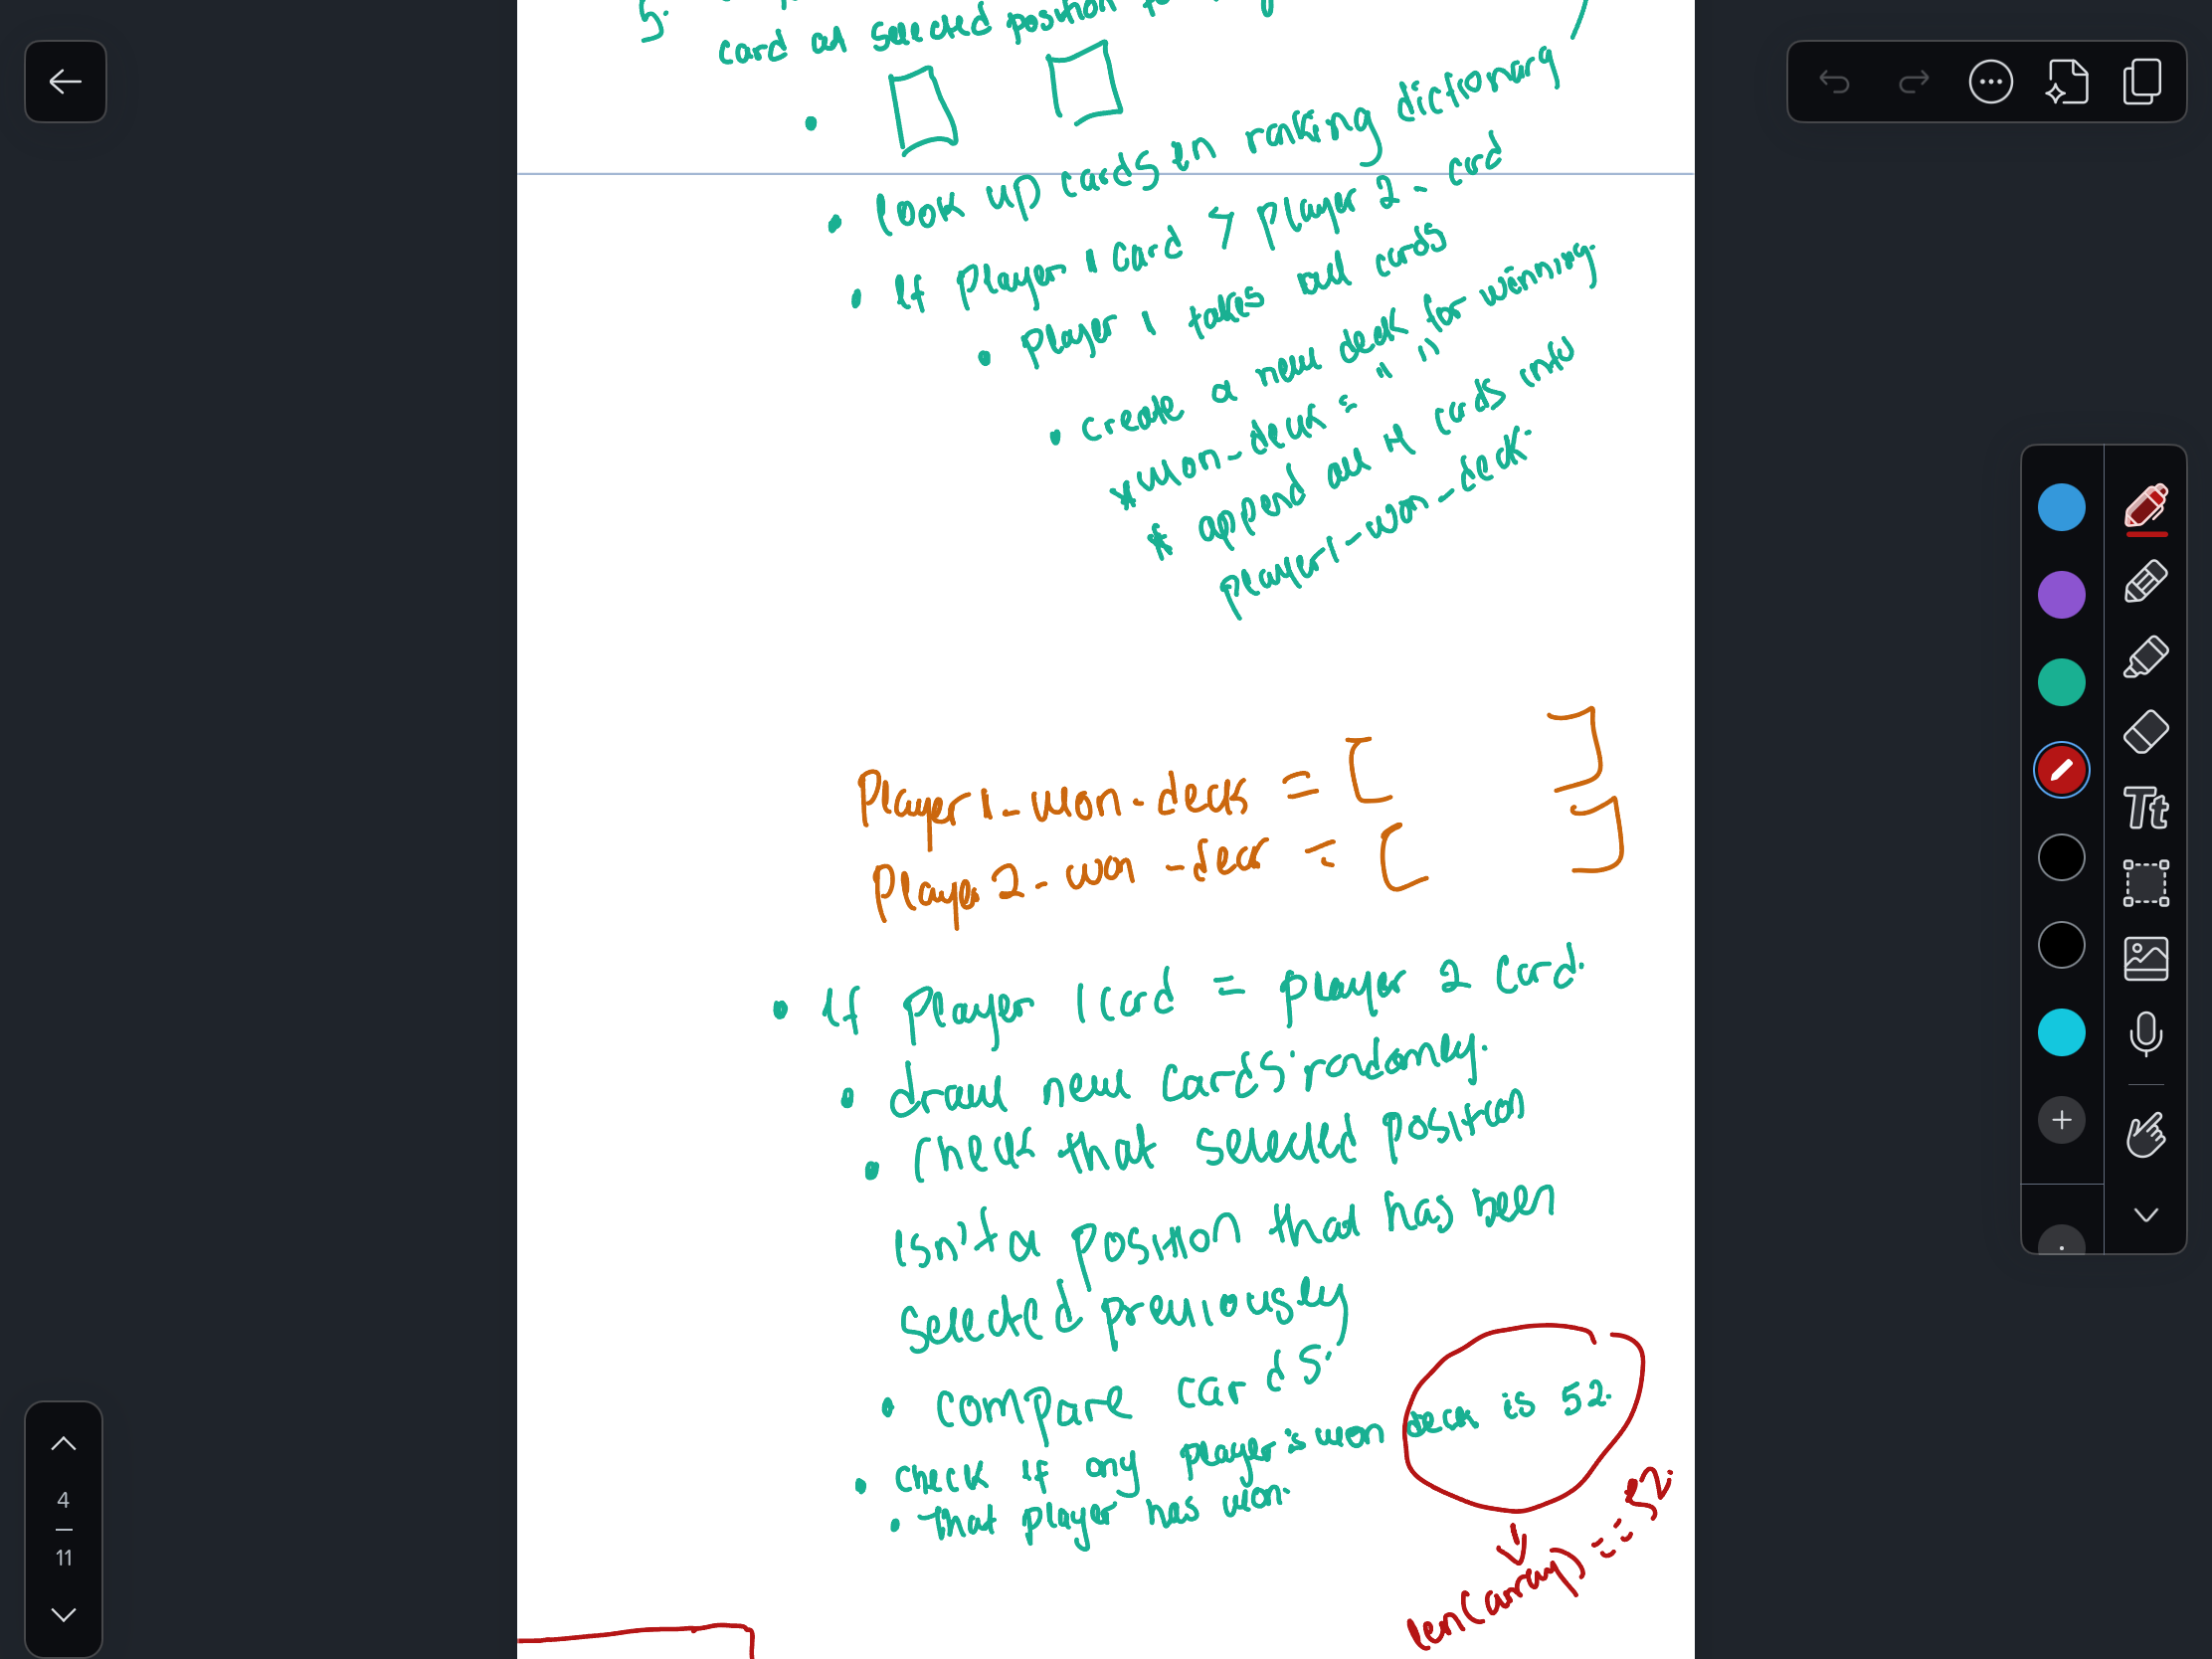 5.
card at selected position
look up cards in ranking dictionary
If player 1 card > player 2 - card
player 1 takes all cards
create a new deck for winning.
* won-deck = " "
* append all 4 cards into
player1-won-deck.
Player1-won-deck = [ ]
Player2-won-deck = [ ]
If Player 1 card = player 2 card.
draw new cards randomly.
check that selected position
isn't a position that has been
selected previously
compare cards.
check if any player's won deck is 52.
that player has won.
len(array) == 52.
Tt
4
11